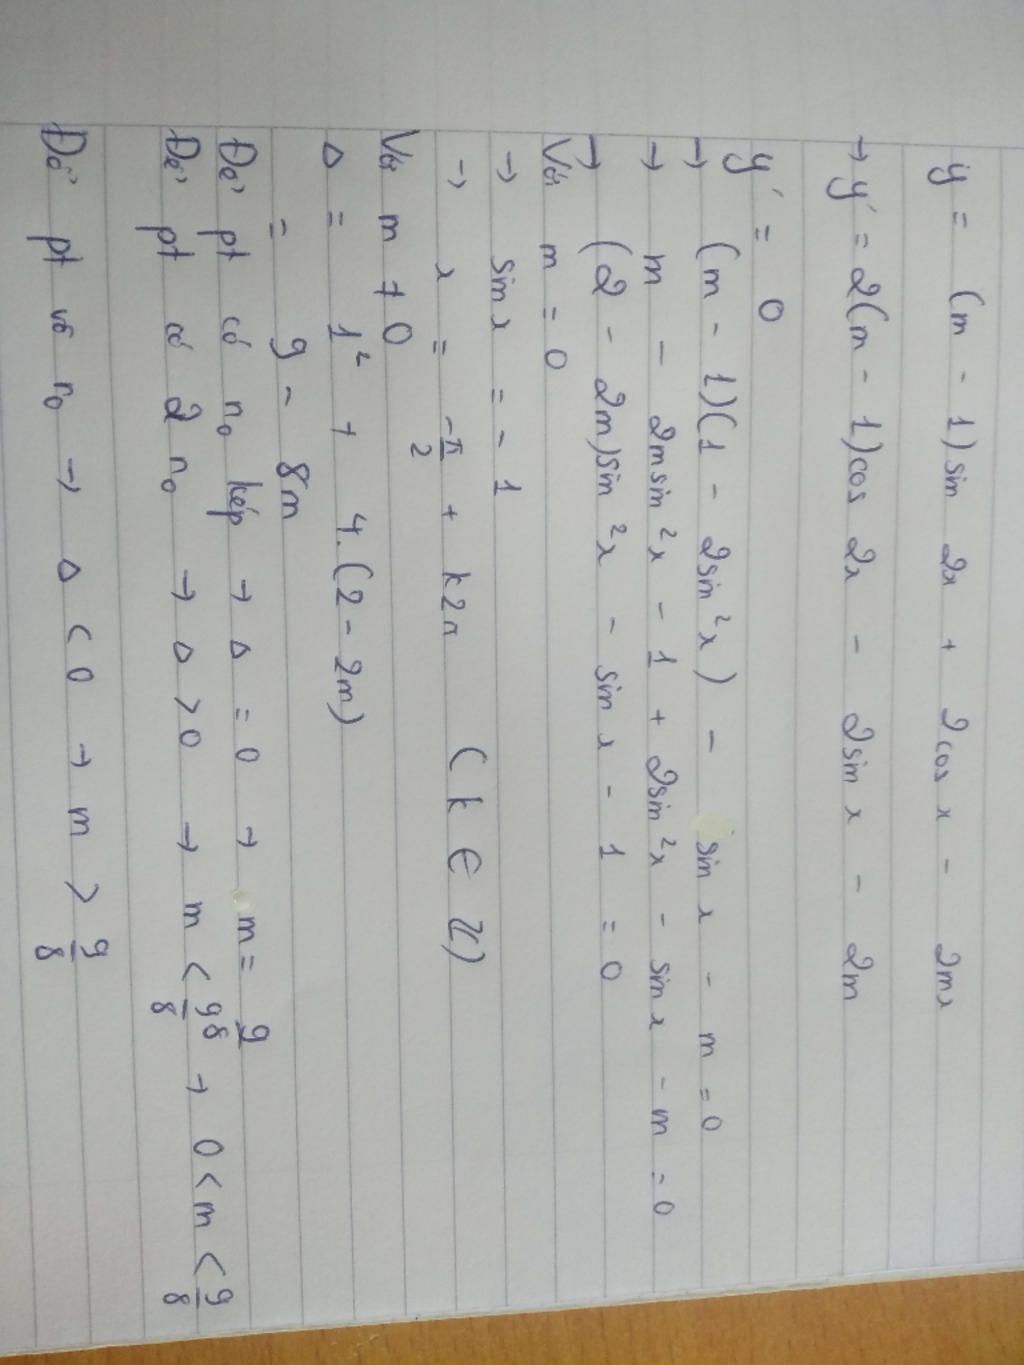 y = (m - 1) sin 2x + 2cos x - 2mx
→ y' = 2(m - 1)cos 2x - 2sin x - 2m
y' = 0
→ (m - 1)(1 - 2sin²x) - sin x - m = 0
→ m - 2msin²x - 1 + 2sin²x - sin x - m = 0
→ (2 - 2m)sin²x - sin x - 1 = 0
Với m = 0
→ sin x = - 1
→ x = -π/2 + k2π (k ∈ Z)
Với m ≠ 0
Δ = 1² + 4.(2 - 2m)
= 9 - 8m
Để pt có n₀ kép → Δ = 0 → m = 9/8
Để pt có 2 n₀ → Δ > 0 → m < 9/8 → 0 < m < 9/8
Để pt vô n₀ → Δ < 0 → m > 9/8